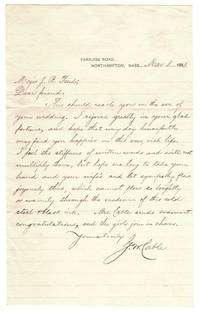 PARADISE ROAD,
NORTHAMPTON, MASS.,
Major J. B. Pond;
Dear friend:
This should reach you on the eve of
your wedding. I rejoice greatly in your glad
fortune, and hope that every day henceforth
may find you happier in this very rich life.
I feel the stiffness of written words and will not
multiply them, but hope ere long to take your
hand and your wife's and let sympathy flow
joyously thro, which cannot flow so brightly
or warmly through the medium of this cold
steel & black ink. Mrs Cable sends warmest
congratulations, and the girls join in chorus.
Yours truly
G W Cable